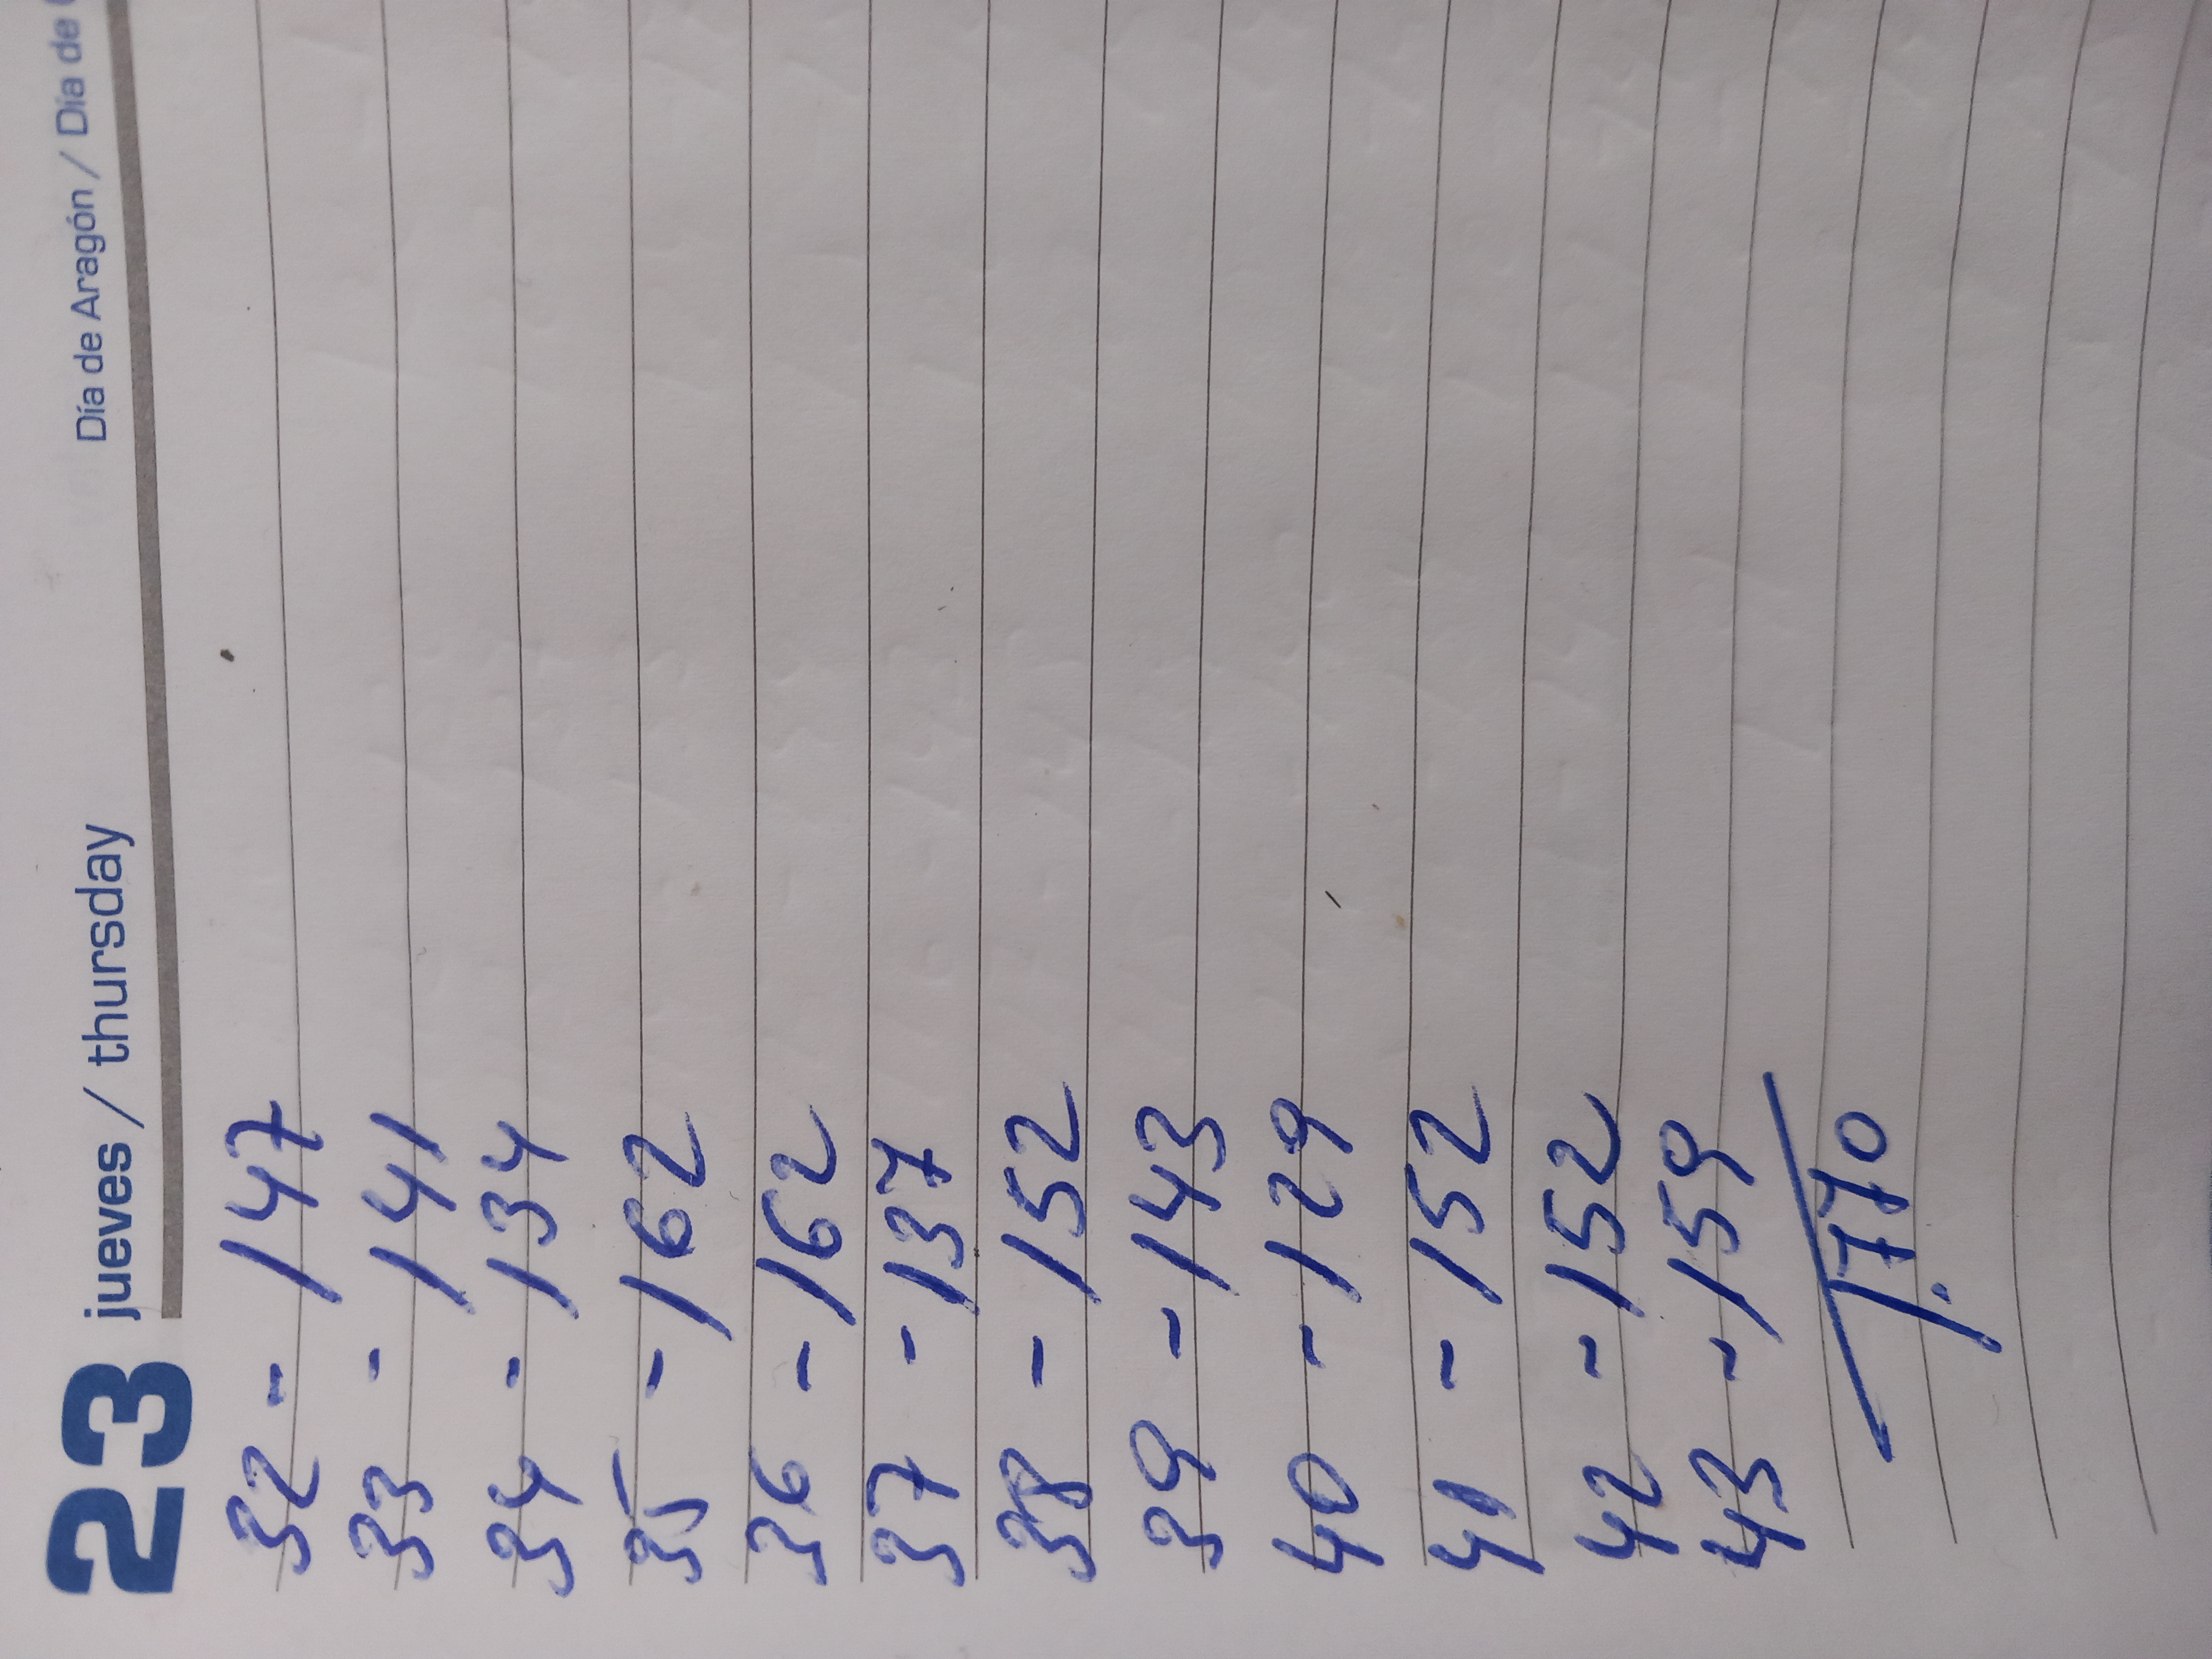 23 jueves / thursday Día de Aragón / Día de
32 - 147
33 - 141
34 - 134
35 - 162
36 - 162
37 - 137
38 - 152
39 - 143
40 - 129
41 - 152
42 - 152
43 - 159
1.770